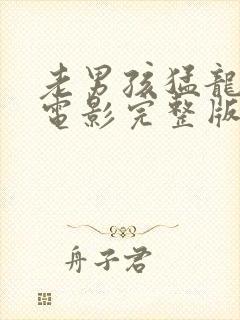 老男孩猛龍
電影完整版
舟子君